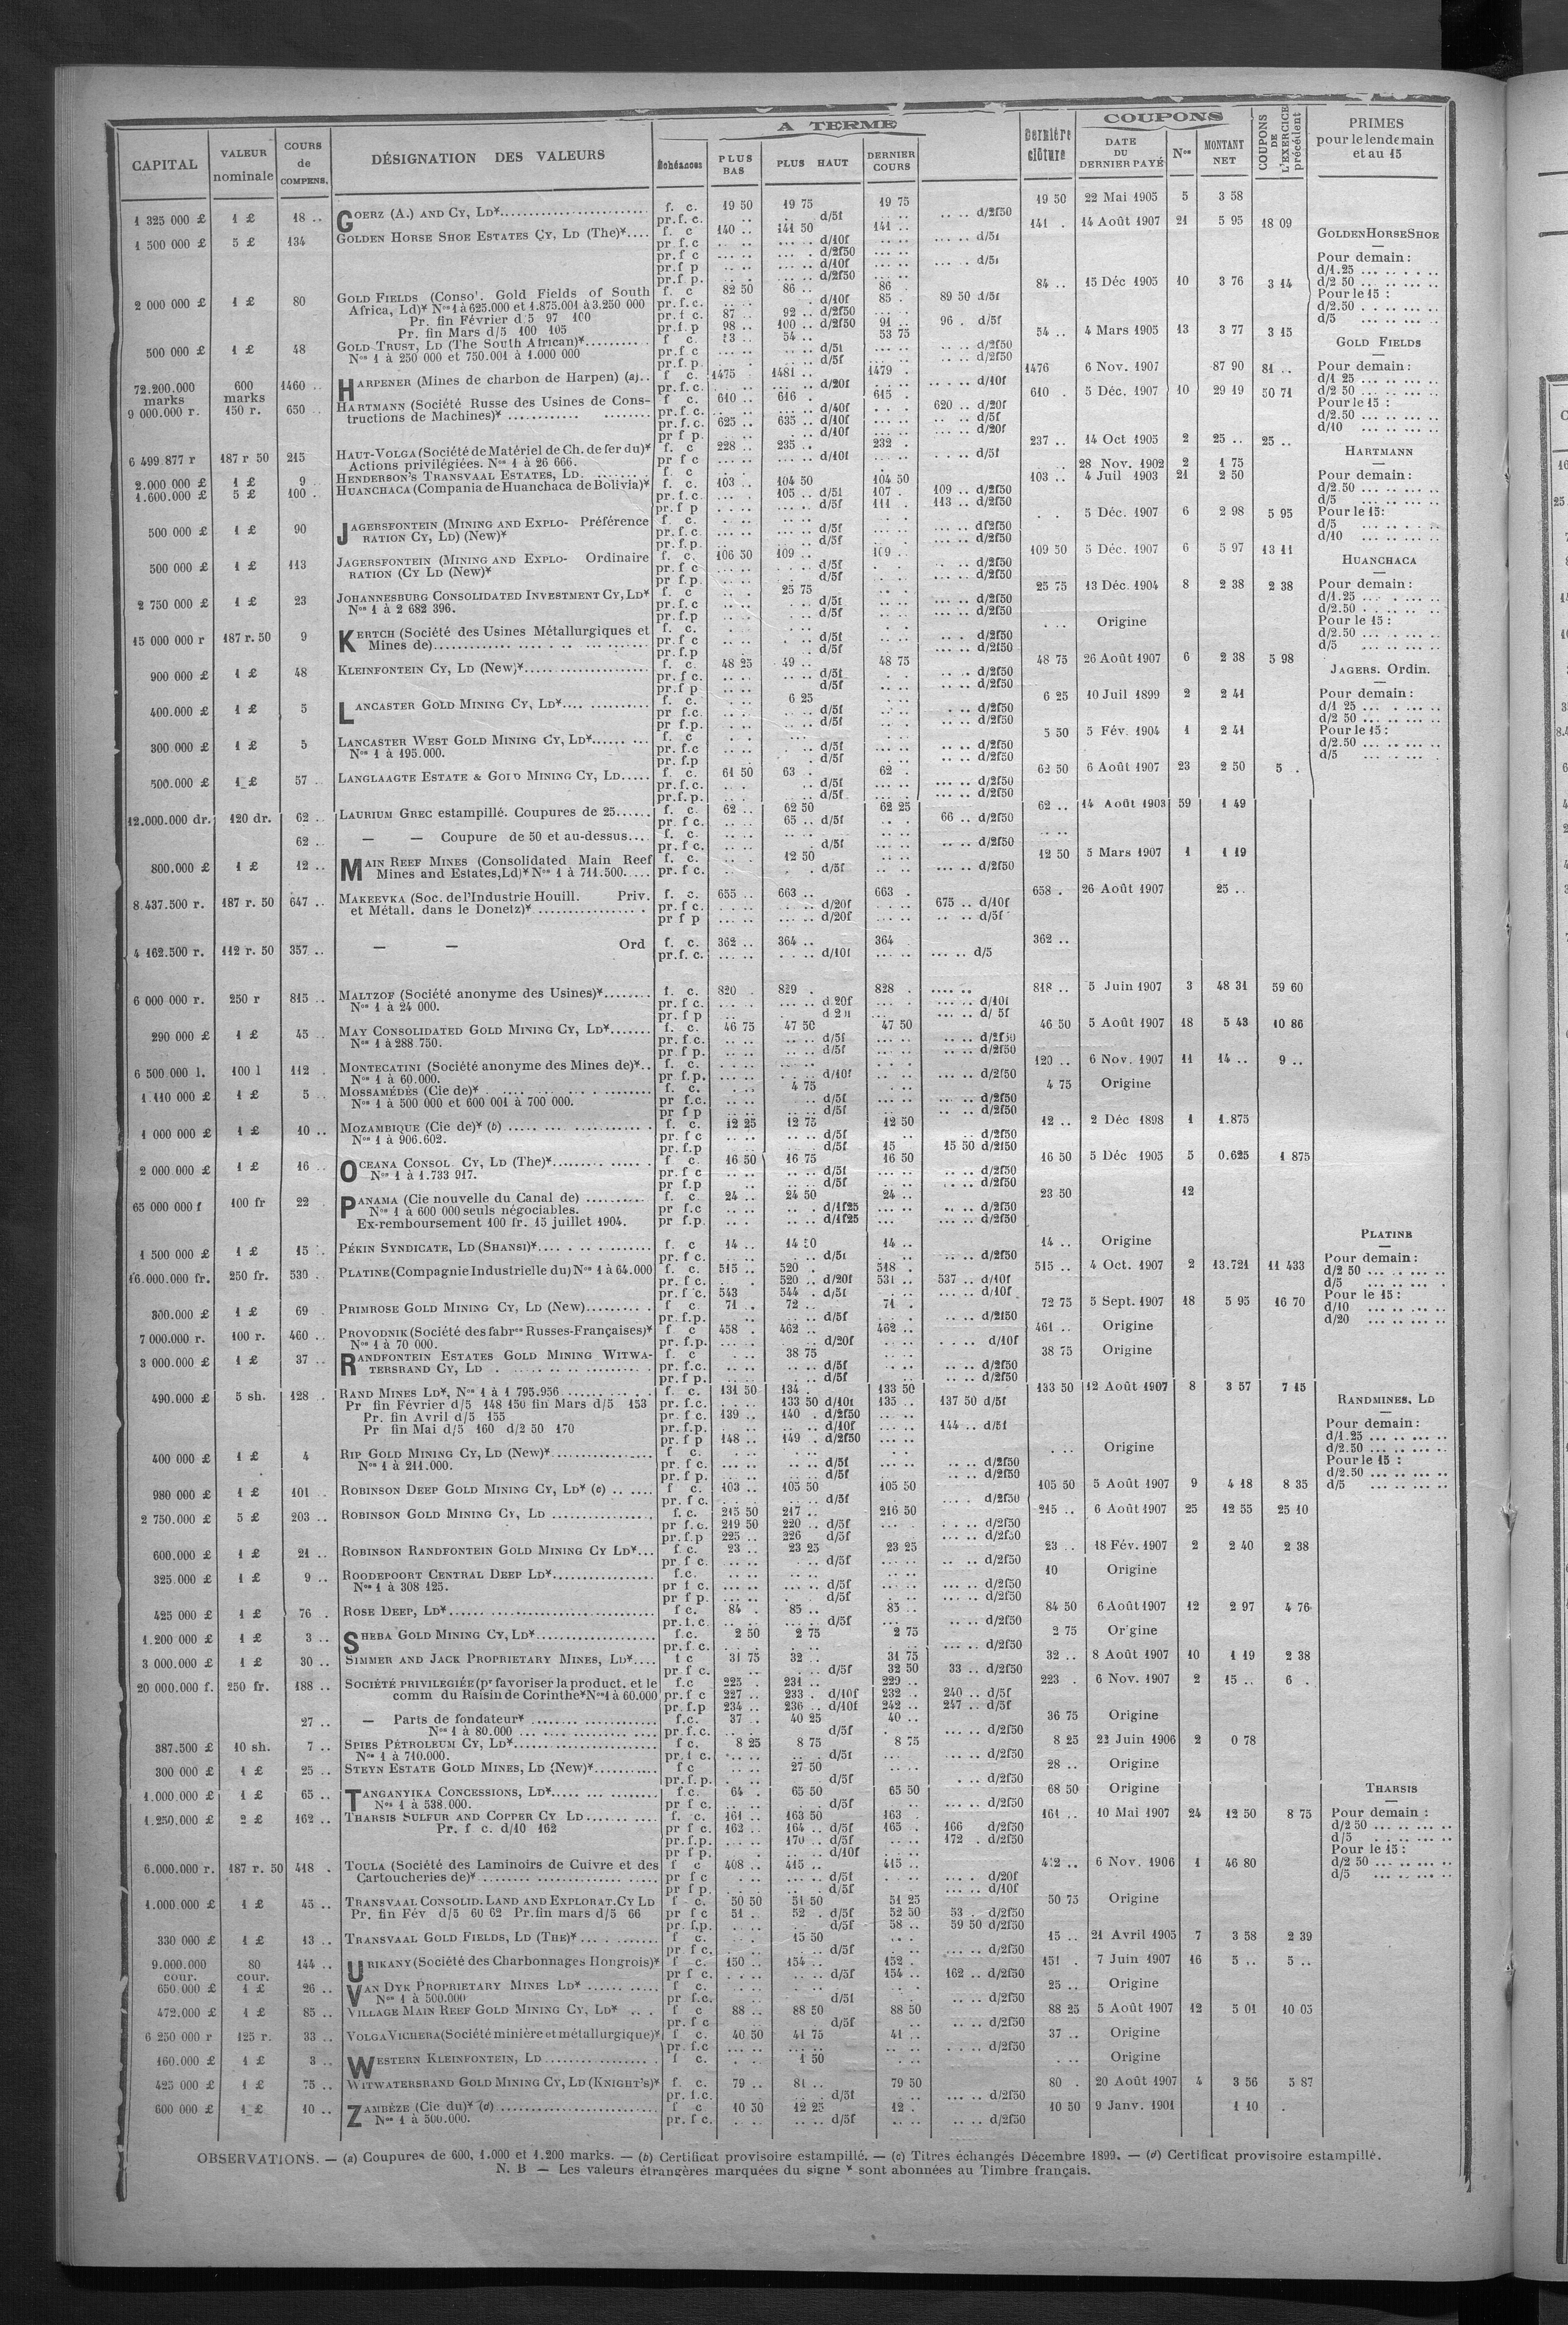 CAPITAL
VALEUR nominale
COURS de COMPENS.
DÉSIGNATION DES VALEURS
A TERME
Échéances
PLUS BAS
PLUS HAUT
DERNIER COURS
Dernière clôture
COUPONS
DATE DU DERNIER PAYÉ
Nos
MONTANT NET
COUPONS DE L'EXERCICE précédent
PRIMES pour le lendemain et au 15
1 325 000 £ 1 £ 18 .. GOERZ (A.) AND CY, LD* f. c. 19 50 19 75 19 75 19 50 22 Mai 1905 5 3 58
pr. f. c. d/5f d/2f50
1 500 000 £ 5 £ 134 GOLDEN HORSE SHOE ESTATES CY, LD (The)* f. c 140 .. 141 50 141 .. 141 . 14 Août 1907 21 5 95 18 09
2 000 000 £ 1 £ 80 GOLD FIELDS (Consol. Gold Fields of South f. c 82 50 86 .. 86 . 84 .. 15 Déc 1905 10 3 76 3 14
Africa, Ld)* Nos 1 à 625.000 et 1.875.001 à 3.250 000 pr. f. c. d/10f 85 . 89 50 d/5f
Pr. fin Février d/5 97 100 pr. f c. 87 .. 92 .. d/2f50
Pr. fin Mars d/5 100 105 pr. f. p 98 .. 100 .. d/2f50 91 .. 96 . d/5f
500 000 £ 1 £ 48 GOLD TRUST, LD (The South African)* f c. 54 .. 53 75 54 .. 4 Mars 1905 13 3 77 3 15
Nos 1 à 250 000 et 750.001 à 1.000 000
72.200.000 marks 600 marks 1460 .. HARPENER (Mines de charbon de Harpen) (a) .. f c. 1475 1481 .. 1479 . 1476 6 Nov. 1907 87 90 81 ..
pr. f. c. d/20f d/10f
9 000.000 r. 150 r. 650 .. HARTMANN (Société Russe des Usines de Cons- f. c. 610 .. 616 . 615 . 610 . 5 Déc. 1907 10 29 19 50 71
tructions de Machines)* pr. f. c. d/40f 620 .. d/20f
pr. f. c. 625 .. 635 .. d/10f d/5f
pr f p. d/10f d/20f
6 499 877 r 187 r 50 215 HAUT-VOLGA (Société de Matériel de Ch. de fer du)* f. c 228 .. 235 .. 232 . 237 .. 14 Oct 1905 2 25 .. 25 ..
Actions privilégiées. Nos 1 à 26 666. pr f c d/10f d/5f
2.000 000 £ 1 £ 9 . HENDERSON'S TRANSVAAL ESTATES, LD. f c 28 Nov. 1902 2 1 75
1.600.000 £ 5 £ 100 . HUANCHACA (Compania de Huanchaca de Bolivia)* f. c. 103 .. 104 50 104 50 103 .. 4 Juil 1903 21 2 50
pr. f. c. 105 .. d/5f 107 . 109 .. d/2f50
pr. f p d/5f 111 . 113 .. d/2f50
500 000 £ 1 £ 90 JAGERSFONTEIN (MINING AND EXPLO- Préférence f. c. 5 Déc. 1907 6 2 98 5 95
RATION CY, LD) (New)* pr. f. c. d/5f d/2f50
500 000 £ 1 £ 113 JAGERSFONTEIN (MINING AND EXPLO- Ordinaire f. c. 106 50 109 .. 109 .. 109 50 5 Déc. 1907 6 5 97 13 11
RATION (CY LD (New)* pr. f c d/5f d/2f50
2 750 000 £ 1 £ 23 JOHANNESBURG CONSOLIDATED INVESTMENT CY, LD* f. c 25 75 25 75 13 Déc. 1904 8 2 38 2 38
Nos 1 à 2 682 396. pr. f. c d/5f d/2f50
15 000 000 r 187 r. 50 9 KERTCH (Société des Usines Métallurgiques et f. c. Origine
Mines de) pr. f c d/5f d/2f50
900 000 £ 1 £ 48 KLEINFONTEIN CY, LD (New)* f. c. 48 25 49 .. 48 75 48 75 26 Août 1907 6 2 38 5 98
400.000 £ 1 £ 5 LANCASTER GOLD MINING CY, LD* f. c. 6 25 6 25 10 Juil 1899 2 2 41
300.000 £ 1 £ 5 LANCASTER WEST GOLD MINING CY, LD* f. c 5 50 5 Fév. 1904 1 2 41
Nos 1 à 195.000. pr. f. c d/5f d/2f50
500.000 £ 1 £ 57 LANGLAAGTE ESTATE & GOLD MINING CY, LD f. c. 61 50 63 . 62 . 62 50 6 Août 1907 23 2 50 5 .
12.000.000 dr. 120 dr. 62 .. LAURIUM GREC estampillé. Coupures de 25 f. c. 62 .. 62 50 62 25 62 .. 14 Août 1903 59 1 49
pr. f c. 65 .. d/5f 66 .. d/2f50
62 .. — — Coupure de 50 et au-dessus f. c.
pr. f c. d/5f d/2f50
800.000 £ 1 £ 12 .. MAIN REEF MINES (Consolidated Main Reef f. c. 12 50 12 50 5 Mars 1907 1 1 19
Mines and Estates, Ld)* Nos 1 à 711.500. pr. f. c. d/5f d/2f50
8.437.500 r. 187 r. 50 647 .. MAKEEVKA (Soc. de l'Industrie Houill. Priv. f. c. 655 .. 663 .. 663 . 658 . 26 Août 1907 25 ..
et Métall. dans le Donetz)* pr. f c. d/20f 675 .. d/10f
pr f p d/20f d/5f
4 162.500 r. 112 r. 50 357 .. — — Ord f. c. 362 .. 364 .. 364 362 ..
pr. f. c. d/10f d/5
6 000 000 r. 250 r 815 .. MALTZOF (Société anonyme des Usines)* f. c. 820 . 829 . 828 . 818 .. 5 Juin 1907 3 48 31 59 60
Nos 1 à 24 000. pr. f c. d/20f d/10f
290 000 £ 1 £ 45 .. MAY CONSOLIDATED GOLD MINING CY, LD* f. c. 46 75 47 50 47 50 46 50 5 Août 1907 18 5 43 10 86
Nos 1 à 288.750. pr. f. c. d/5f d/2f50
6 500 000 l. 100 l 112 . MONTECATINI (Société anonyme des Mines de)* f. c. 120 .. 6 Nov. 1907 11 14 .. 9 ..
Nos 1 à 60.000. pr f. p. d/10f d/2f50
1 110 000 £ 1 £ 5 .. MOSSAMÉDÈS (Cie de)* f. c. 4 75 4 75 Origine
Nos 1 à 500 000 et 600 001 à 700 000. pr f. c. d/5f d/2f50
1 000 000 £ 1 £ 10 .. MOZAMBIQUE (Cie de)* (b) f. c. 12 25 12 75 12 50 12 .. 2 Déc 1898 1 1.875
Nos 1 à 906.602. pr. f c d/5f d/2f50
pr. f. p d/5f 15 15 50 d/2f50
2 000 000 £ 1 £ 16 .. OCEANA CONSOL. CY, LD (The)* f c. 16 50 16 75 16 50 16 50 5 Déc 1905 5 0.625 1 875
Nos 1 à 1.733 917. pr. f c d/5f d/2f50
65 000 000 f 100 fr 22 PANAMA (Cie nouvelle du Canal de) f. c 24 .. 24 50 24 .. 23 50 12
Nos 1 à 600 000 seuls négociables. pr f. c d/1f25 d/2f50
Ex-remboursement 100 fr. 15 juillet 1904. pr f. p. d/1f25 d/2f50
1 500 000 £ 1 £ 15 .. PÉKIN SYNDICATE, LD (SHANSI)* f. c 14 .. 14 50 14 .. 14 .. Origine
16.000.000 fr. 250 fr. 530 . PLATINE (Compagnie Industrielle du) Nos 1 à 64.000 f. c. 515 .. 520 . 518 . 515 .. 4 Oct. 1907 2 13.721 11 433
pr. f c. 520 .. d/20f 531 .. 537 .. d/10f
pr. f c. 543 544 . d/5f d/10f
300.000 £ 1 £ 69 . PRIMROSE GOLD MINING CY, LD (New) f c. 71 . 72 .. 71 . 72 75 5 Sept. 1907 18 5 95 16 70
7 000.000 r. 100 r. 460 .. PROVODNIK (Société des fabres Russes-Françaises)* f c 458 . 462 .. 462 .. 461 .. Origine
Nos 1 à 70 000. pr. f. p. d/20f d/10f
3 000.000 £ 1 £ 37 .. RANDFONTEIN ESTATES GOLD MINING WITWA- f. c 38 75 38 75 Origine
TERSRAND CY, LD pr. f. c. d/5f d/2f50
490.000 £ 5 sh. 128 . RAND MINES LD*, Nos 1 à 1 795.956 f. c. 131 50 134 . 133 50 133 50 12 Août 1907 8 3 57 7 15
Pr fin Février d/5 148 150 fin Mars d/5 153 pr. f. c. 133 50 d/10f 135 .. 137 50 d/5f
Pr. fin Avril d/5 155 pr. f c. 139 .. 140 . d/2f50
Pr fin Mai d/5 160 d/2 50 170 pr. f. p. d/10f 144 .. d/5f
pr. f p 148 .. 149 . d/2f50
400 000 £ 1 £ 4 RIP GOLD MINING CY, LD (New)* f c. Origine
Nos 1 à 211.000. pr. f c. d/5f d/2f50
980 000 £ 1 £ 101 . ROBINSON DEEP GOLD MINING CY, LD* (c) f c. 103 .. 105 50 105 50 105 50 5 Août 1907 9 4 18 8 35
2 750.000 £ 5 £ 203 .. ROBINSON GOLD MINING CY, LD f. c. 215 50 217 .. 216 50 215 .. 6 Août 1907 25 12 55 25 10
pr f. c. 219 50 220 .. d/5f d/2f50
pr. f. p 225 .. 226 d/5f d/2f50
600.000 £ 1 £ 21 .. ROBINSON RANDFONTEIN GOLD MINING CY LD* f. c. 23 .. 23 25 23 25 23 .. 18 Fév. 1907 2 2 40 2 38
325.000 £ 1 £ 9 .. ROODEPOORT CENTRAL DEEP LD* f. c. 10 Origine
Nos 1 à 308 125. pr f c. d/5f d/2f50
425 000 £ 1 £ 76 . ROSE DEEP, LD* f c. 84 . 85 .. 85 .. 84 50 6 Août 1907 12 2 97 4 76
1.200 000 £ 1 £ 3 .. SHEBA GOLD MINING CY, LD* f. c. 2 50 2 75 2 75 2 75 Origine
3 000.000 £ 1 £ 30 .. SIMMER AND JACK PROPRIETARY MINES, LD* f c 31 75 32 .. 31 75 32 .. 8 Août 1907 10 1 19 2 38
pr f c. d/5f 32 50 33 .. d/2f50
20 000.000 f. 250 fr. 188 .. SOCIÉTÉ PRIVILEGIÉE (pr favoriser la product. et le f. c 225 . 231 .. 229 .. 223 . 6 Nov. 1907 2 15 .. 6 .
comm du Raisin de Corinthe* Nos 1 à 60.000 pr. f c 227 .. 233 . d/10f 232 .. 240 .. d/5f
pr. f. p 234 .. 236 .. d/10f 242 .. 247 .. d/5f
27 .. — Parts de fondateur* f. c. 37 . 40 25 40 .. 36 75 Origine
Nos 1 à 80.000 pr. f. c. d/5f d/2f50
387.500 £ 10 sh. 7 .. SPIES PÉTROLEUM CY, LD* f c. 8 25 8 75 8 75 8 25 22 Juin 1906 2 0 78
Nos 1 à 710.000. pr. f c. d/5f d/2f50
300 000 £ 1 £ 25 .. STEYN ESTATE GOLD MINES, LD (New)* f c 27 50 28 .. Origine
1.000.000 £ 1 £ 65 .. TANGANYIKA CONCESSIONS, LD* f. c. 64 . 65 50 65 50 68 50 Origine
Nos 1 à 538.000. pr f c. d/5f d/2f50
1.250.000 £ 2 £ 162 .. THARSIS SULFUR AND COPPER CY LD f. c. 161 .. 163 50 163 . 161 .. 10 Mai 1907 24 12 50 8 75
Pr. f c. d/10 162 pr f c. 162 .. 164 .. d/5f 165 . 166 d/2f50
pr. f. p. 170 .. d/5f 172 . d/2f50
pr f p. d/10f
6.000.000 r. 187 r. 50 418 . TOULA (Société des Laminoirs de Cuivre et des f c 408 .. 415 .. 415 .. 6 Nov. 1906 1 46 80
Cartoucheries de)* pr f c d/5f d/20f
pr f p. d/5f d/10f
1.000.000 £ 1 £ 45 .. TRANSVAAL CONSOLID. LAND AND EXPLORAT. CY LD f c. 50 50 51 50 51 25 50 75 Origine
Pr. fin Fév d/5 60 62 Pr. fin mars d/5 66 pr f c 51 . 52 . d/5f 52 50 53 . d/2f50
pr. f. p. d/5f 58 .. 59 50 d/2f50
330 000 £ 1 £ 13 .. TRANSVAAL GOLD FIELDS, LD (THE)* f c. 15 50 15 .. 21 Avril 1905 7 3 58 2 39
9.000.000 cour. 80 cour. 144 .. URIKANY (Société des Charbonnages Hongrois)* f c. 150 .. 154 .. 152 . 151 . 7 Juin 1907 16 5 .. 5 ..
pr f c. d/5f 154 .. 162 .. d/2f50
650.000 £ 1 £ 26 .. VAN DYK PROPRIETARY MINES LD* f c. 25 .. Origine
Nos 1 à 500.000 pr f. c. d/5f d/2f50
472.000 £ 1 £ 85 .. VILLAGE MAIN REEF GOLD MINING CY, LD* f c 88 .. 88 50 88 50 88 25 5 Août 1907 12 5 01 10 03
6 250 000 r 125 r. 33 .. VOLGA VICHERA (Société minière et métallurgique)* f c. 40 50 41 75 41 .. 37 .. Origine
160.000 £ 1 £ 3 .. WESTERN KLEINFONTEIN, LD f c. 1 50 Origine
425 000 £ 1 £ 75 .. WITWATERSRAND GOLD MINING CY, LD (KNIGHT'S)* f. c. 79 .. 81 .. 79 50 80 . 20 Août 1907 4 3 56 5 87
600 000 £ 1 £ 10 .. ZAMBÈZE (Cie du)* (d) f c 10 50 12 25 12 . 10 50 9 Janv. 1901 1 10
Nos 1 à 500.000. pr. f c. d/5f d/2f50
GOLDEN HORSE SHOE
Pour demain :
d/1.25
d/2 50
Pour le 15 :
d/2.50
d/5
GOLD FIELDS
Pour demain :
d/1 25
d/2 50
Pour le 15 :
d/2.50
d/10
HARTMANN
Pour demain :
d/2.50
d/5
Pour le 15 :
d/5
d/10
HUANCHACA
Pour demain :
d/1.25
d/2.50
Pour le 15 :
d/2.50
d/5
JAGERS. Ordin.
Pour demain :
d/1 25
d/2 50
Pour le 15 :
d/2.50
d/5
PLATINE
Pour demain :
d/2 50
d/5
Pour le 15 :
d/10
d/20
RANDMINES, LD
Pour demain :
d/1.25
d/2.50
Pour le 15 :
d/2.50
d/5
THARSIS
Pour demain :
d/2 50
d/5
Pour le 15 :
d/2 50
d/5
OBSERVATIONS. — (a) Coupures de 600, 1.000 et 1.200 marks. — (b) Certificat provisoire estampillé. — (c) Titres échangés Décembre 1899. — (d) Certificat provisoire estampillé.
N. B — Les valeurs étrangères marquées du signe * sont abonnées au Timbre français.